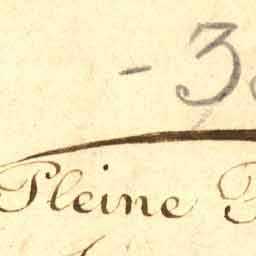 - 3
Pleine